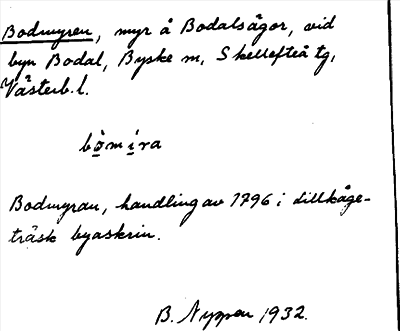 Bodmyren, myr å Bodalsågor, vid
byn Bodal, Byske m, Skellefteå tg,
Västerb. l.
bo̱m i̱ra
Bodmyran, handling av 1796 i Lillkåge-
träsk byaskrin.
B. Nygren 1932.